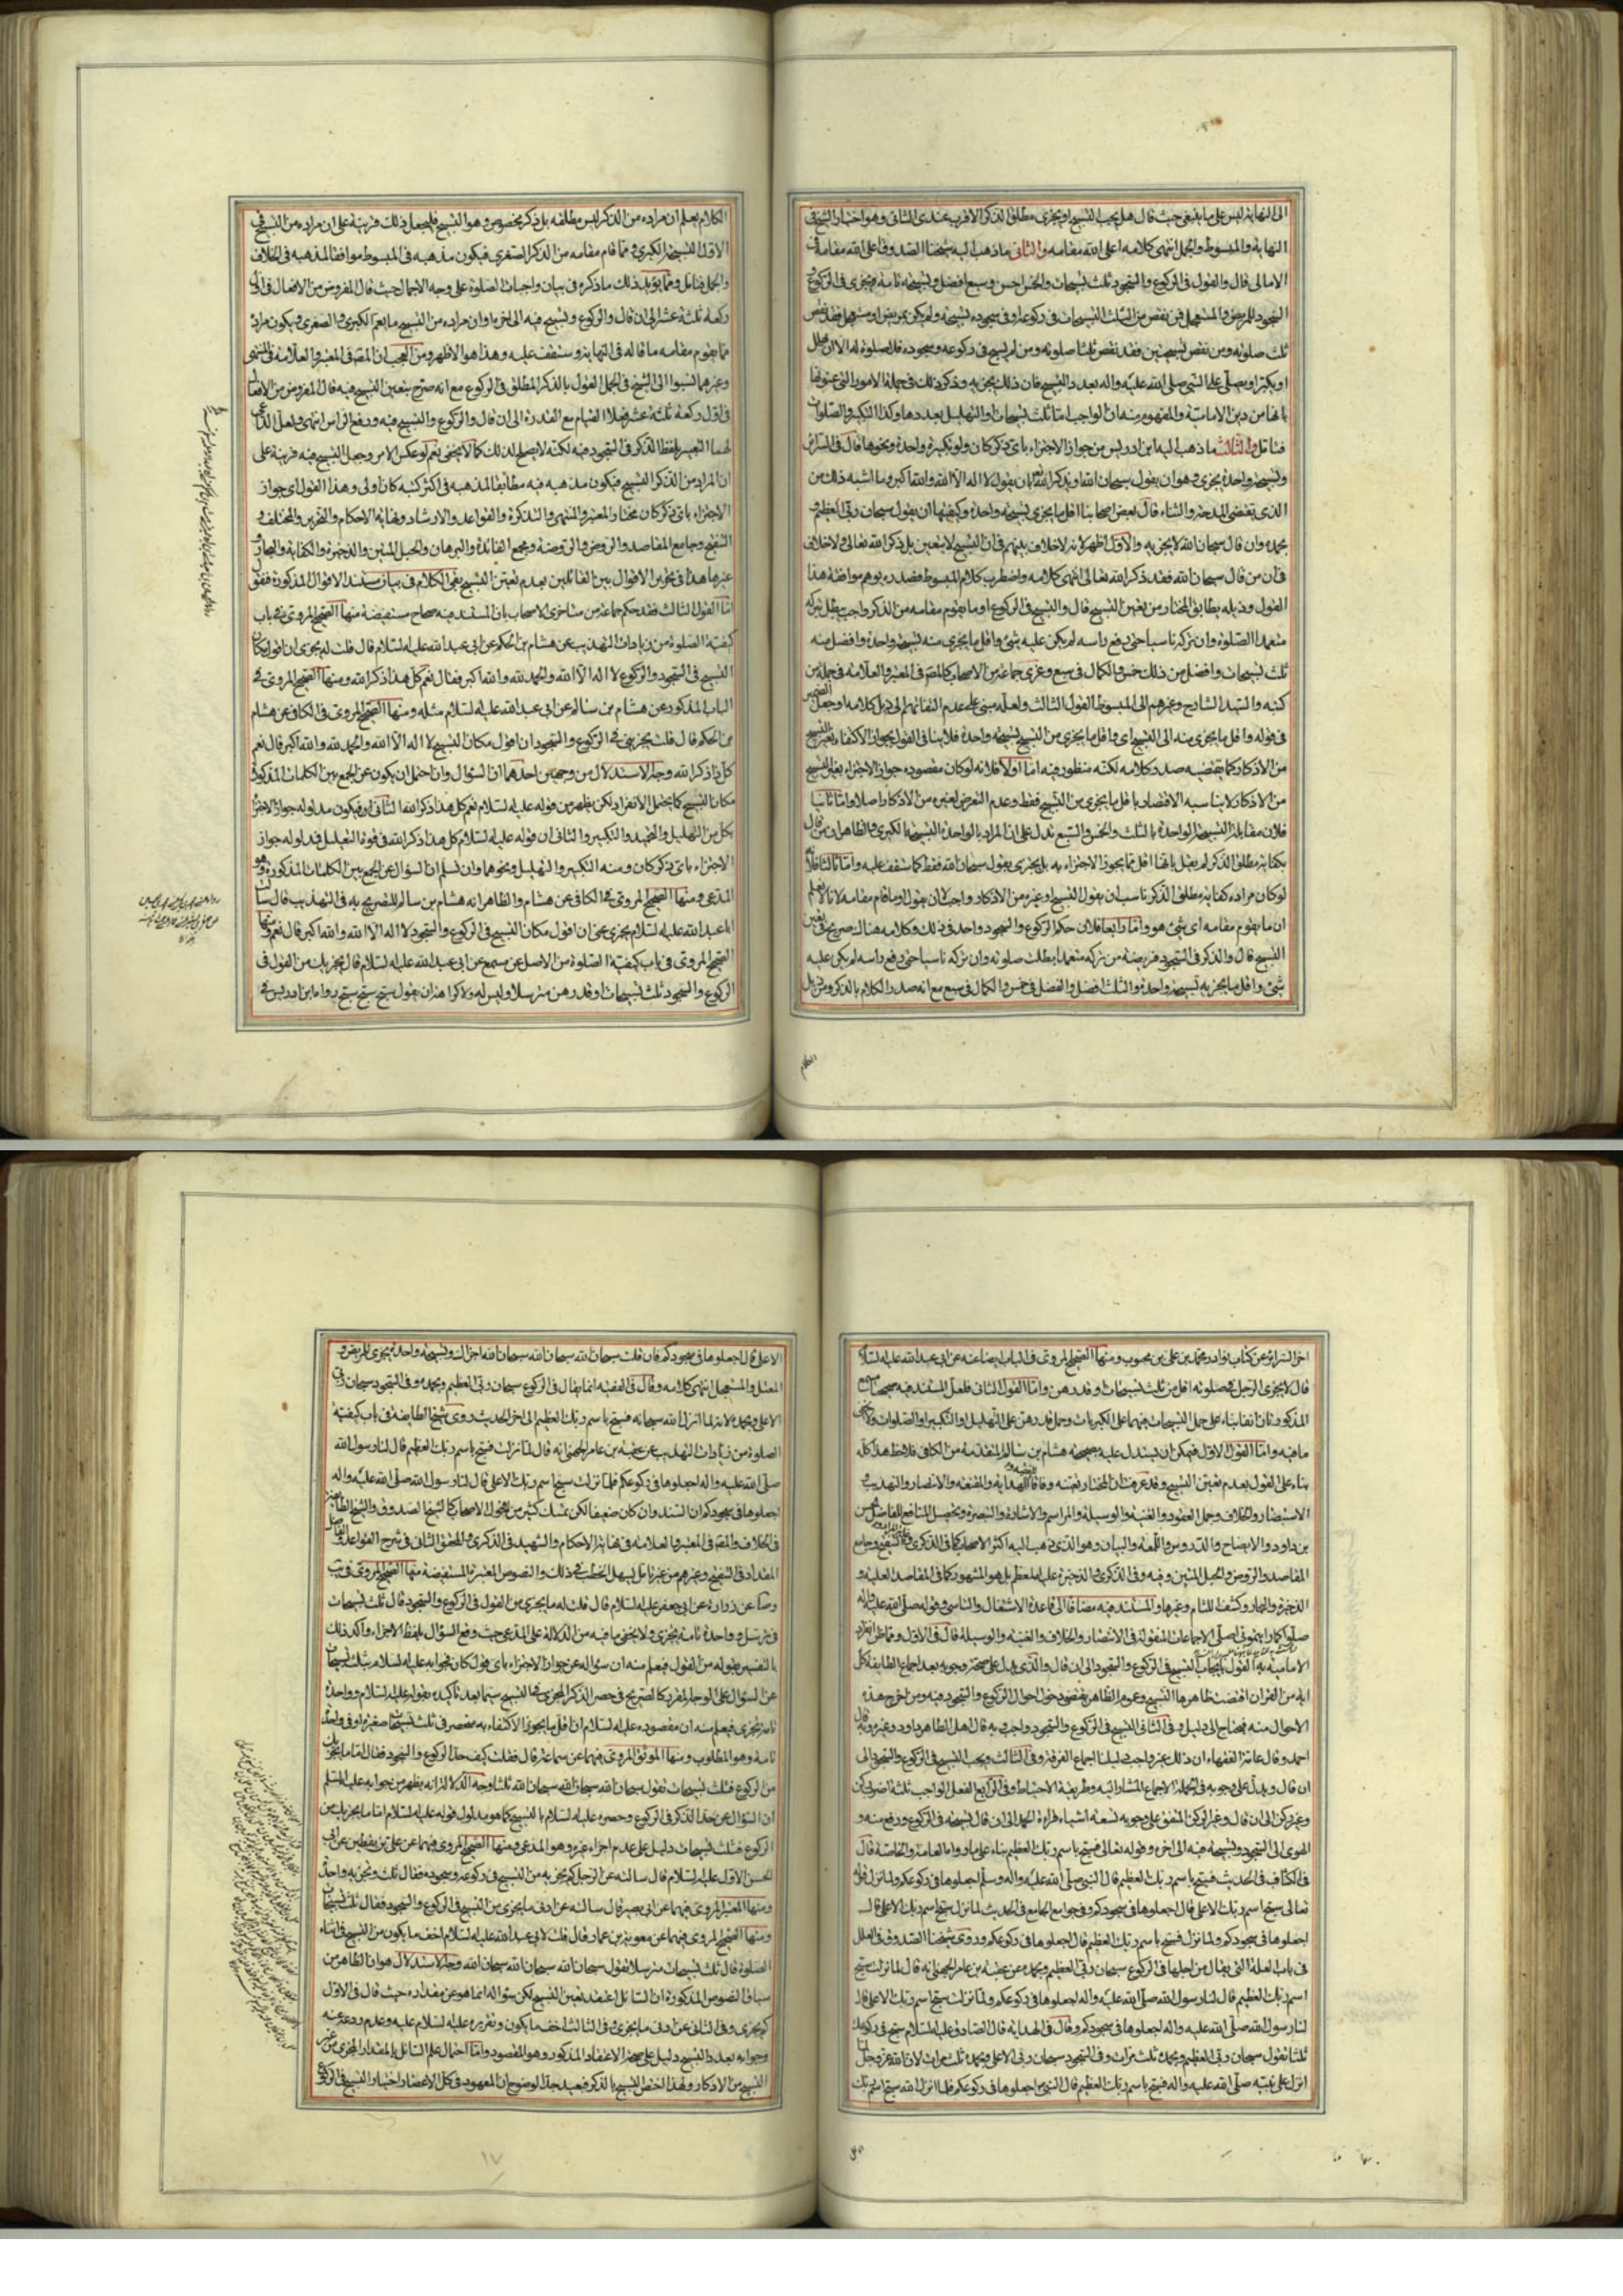 الى النهاية ليس على ما ينبغى حيث قال هل يجب التسبيح او يجزى مطلق الذكر الاقرب عندى الثانى وهو اختيار الشيخ فى
النهاية والمبسوط والجمل انتهى كلامه اعلى الله مقامه والثانى ما ذهب اليه شيخنا الصدوق اعلى الله مقامه فى
الامالى قال والقول فى الركوع والسجود ثلث تسبيحات والخمس احسن وسبع افضل وتسبيحة تامة تجزى فى الركوع
السجود للمريض والمستعجل فمن نقص من الثلث التسبيحات فى ركوعه او فى سجوده تسبيحة ولم يكن بمريض او مستعجل فقد نقص
ثلث صلوته ومن نقص تسبيحتين فقد نقص ثلثا صلوته ومن لم يسبح فى ركوعه وسجوده فلا صلوة له الا ان يهلل
او يكبر او يصلى على النبى صلى الله عليه واله بعدد التسبيح فان ذلك يجزيه وذكر ذلك فى جملة الامور التى عنونها
بانها من دين الامامية والمفهوم منه ان الواجب اما ثلث تسبيحات او التهليل بعددها وكذا التكبير والصلوات
فتامل والثالث ما ذهب اليه ابن ادريس من جواز الاجتزاء باى ذكر كان ولو تكبيرة واحدة ونحوها قال فى السرائر
وتسبيحة واحدة تجزى وهو ان يقول سبحان الله او يذكر الله بان يقول لا اله الا الله والله اكبر وما اشبه ذلك من
الذى يقتضى المدحة والثناء قال بعض اصحابنا اقل ما يجزى تسبيحة واحدة وكيفيتها ان يقول سبحان ربى العظيم و
بحمده وان قال سبحان الله لا يجزيه والاول اظهر لانه لا خلاف بينهم فى ان التسبيح لا يتعين بل ذكر الله تعالى ولا خلاف
فى ان من قال سبحان الله فقد ذكر الله تعالى انتهى كلامه واضطرب كلام المبسوط فصدره يوهم موافقة هذا
القول وذيله يطابق المختار من تعين التسبيح قال والتسبيح فى الركوع او ما يقوم مقامه من الذكر واجب تبطل بتركه
متعمدا الصلوة وان تركه ناسيا حتى رفع راسه لم يكن عليه شئ واقل ما يجزى منه تسبيحة واحدة وافضل منه
ثلث تسبيحات وافضل من ذلك خمس والكمال فى سبع وعزى جماعة من الاصحاب كالمصنف فى المعتبر والعلامة فى جملة من
كتبه والسيد الشارح وغيرهم الى المبسوط القول الثالث ولعله مبنى على عدم التفاتهم الى ذيل كلامه او جعل الضمير
فى قوله واقل ما يجزى منه الى التسبيح اى واقل ما يجزى من التسبيح تسبيحة واحدة فلا ينافى القول بجواز الاكتفاء بغير التسبيح
من الاذكار كما يقتضيه صدر كلامه لكنه منظور فيه اما اولا فلانه لو كان مقصوده جواز الاجتزاء بغير التسبيح
من الاذكار لا يناسبه الاقتصار باقل ما يجزى من التسبيح فقط وعدم التعرض لغيره من الاذكار اصلا واما ثانيا
فلان مقابلة التسبيحة الواحدة بالثلث والخمس والسبع تدل على ان المراد بالواحدة التسبيحة الكبرى والظاهر ان من قال
بكفاية مطلق الذكر لم يقل بانها اقل مما يجوز الاجتزاء به بل يجزى بقول سبحان الله فقط كما ستقف عليه واما ثالثا فلانه
لو كان مراده كفاية مطلق الذكر ناسب ان يقول التسبيح او غيره من الاذكار واجب لا ان يقول او ما قام مقامه لانا لا نعلم
ان ما يقوم مقامه اى شئ هو واما رابعا فلان حكم الركوع والسجود واحد فى ذلك وكلامه هناك صريح فى تعين
التسبيح قال والذكر فى السجود فريضة من تركه متعمدا بطلت صلوته وان تركه ناسيا حتى رفع راسه لم يكن عليه
شئ واقل ما يجزيه تسبيحة واحدة والثلث افضل والفضل فى خمس والكمال فى سبع مع انه صدر الكلام بالذكر ومن ذيل
الكلام
الكلام يعلم ان مراده من الذكر ليس مطلقه بل ذكر مخصوص وهو التسبيح فليجعل ذلك قرينة على ان مراده من التسبيح فى
الاول التسبيحة الكبرى ومما قام مقامه من الذكر الصغرى فيكون مذهبه فى المبسوط موافقا لمذهبه فى الخلاف
والجمل فتامل ومما يؤيد ذلك ما ذكره فى بيان واجبات الصلوة على وجه الاجمال حيث قال المفروض من الافعال فى اول
ركعة ثلثة عشر الى ان قال والركوع وتسبيح فيه الى اخره او ان مراده من التسبيح ما يعم الكبرى والصغرى ويكون مراده
مما يقوم مقامه ما قاله فى النهاية وستقف عليه وهذا هو الاظهر ومن العجب ان المصنف فى المعتبر والعلامة فى المنتهى
وغيرهما نسبوا الى الشيخ فى الجمل القول بالذكر المطلق فى الركوع مع انه صرح بتعين التسبيح فيه قال المفروض من الافعال
فى اول ركعة ثلثة عشر فعلا القيام مع القدرة الى ان قال والركوع والتسبيح فيه ورفع الراس انتهى ولعل الداعى
لهما التعبير بلفظ الذكر فى السجود فيه لكنه لا يصلح لذلك كما لا يخفى نعم لو عكس الامر وجعل التسبيح فيه قرينة على
ان المراد من الذكر التسبيح فيكون مذهبه فيه مطابقا لمذهبه فى اكثر كتبه كان اولى وهذا القول اى جواز
الاجتزاء باى ذكر كان مختار المعتبر والمنتهى والتذكرة والقواعد والارشاد ونهاية الاحكام والتحرير والمختلف و
التنقيح وجامع المقاصد والروض والروضة ومجمع الفائدة والبرهان والحبل المتين والذخيرة والكفاية والبحار و
غيرها هذا فى تحرير الاقوال بين القائلين بعدم تعين التسبيح بقى الكلام فى بيان مستند الاقوال المذكورة فنقول
اما القول الثالث فقد حكم جماعة من متاخرى الاصحاب بان المستند فيه صحاح مستفيضة منها الصحيح المروى فى باب
كيفية الصلوة من زيادات التهذيب عن هشام بن الحكم عن ابى عبد الله عليه السلام قال قلت له يجزى ان اقول مكان
التسبيح فى السجود والركوع لا اله الا الله والحمد لله والله اكبر فقال نعم كل هذا ذكر الله ومنها الصحيح المروى فى
الباب المذكور عن هشام بن سالم عن ابى عبد الله عليه السلام مثله ومنها الصحيح المروى فى الكافى عن هشام
بن الحكم قال قلت يجزينى فى الركوع والسجود ان اقول مكان التسبيح لا اله الا الله والحمد لله والله اكبر قال نعم
كل ذا ذكر الله وجه الاستدلال من وجهين احدهما ان السؤال وان احتمل ان يكون عن الجمع بين الكلمات المذكورة
مكان التسبيح كما يحتمل الانفراد لكن يظهر من قوله عليه السلام نعم كل هذا ذكر الله الثانى فيكون مدلوله جواز الاجتزاء
بكل من التهليل والتحميد والتكبير والثانى ان قوله عليه السلام كل هذا ذكر الله فى قوة التعليل فمدلوله جواز
الاجتزاء باى ذكر كان ومنه التكبير والتهليل ونحوهما وان سلم ان السؤال عن الجمع بين الكلمات المذكورة وهو
المدعى ومنها الصحيح المروى فى الكافى عن هشام والظاهر انه هشام بن سالم للتصريح به فى التهذيب قال سالت
ابا عبد الله عليه السلام يجزى عنى ان اقول مكان التسبيح فى الركوع والسجود لا اله الا الله والله اكبر قال نعم ومنها
الصحيح المروى فى باب كيفية الصلوة من الاصل عن مسمع عن ابى عبد الله عليه السلام قال يجزيك من القول فى
الركوع والسجود ثلث تسبيحات او قدرهن مترسلا وليس له ولا كرامة ان يقول سبح سبح سبح رواه ابن ادريس فى
اخر السرائر عن كتاب نوادر محمد بن على بن محبوب ومنها الصحيح المروى فى الباب ايضا عنه عن ابى عبد الله عليه السلام
قال لا يجزى الرجل فى صلوته اقل من ثلث تسبيحات او قدرهن واما القول الثانى فلعل المستند فيه صحيحا مسمع
المذكورتان انفا بناء على حمل التسبيحات فيهما على الكبريات وحمل قدرهن على التهليل او التكبير او الصلوات ولا يخفى
ما فيه واما القول الاول فيمكن ان يستدل عليه بصحيحة هشام بن سالم المتقدمة من الكافى فلاحظ هذا كله
بناء على القول بعدم تعين التسبيح وقد عرفت ان المختار تعينه وفاقا للهداية والمقنعة والانتصار والتهذيب و
الاستبصار والخلاف وجمل العقود والغنية والوسيلة والمراسم والاشارة والتبصرة وتحصيل المنافع للفاضل حسن
بن داود والايضاح والدروس واللمعة والبيان وهو الذى ذهب اليه اكثر الاصحاب كما فى الذكرى والتنقيح وجامع
المقاصد والروض والحبل المتين وفيه وفى الذكرى والذخيرة عليه المعظم بل هو المشهور كما فى المقاصد العلية و
الذخيرة والبحار وكشف اللثام وغيرها والمستند فيه مضافا الى قاعدة الاشتغال والتاسى وقوله صلى الله عليه واله
صلوا كما رايتمونى اصلى الاجماعات المنقولة فى الانتصار والخلاف والغنية والوسيلة قال فى الاول ومما ظن انفراد
الامامية به القول بايجاب التسبيح فى الركوع والسجود الى ان قال والذى يدل على صحته وجوبه بعد اجماع الطايفة كل
اية من القران اقتضت ظاهرها التسبيح وعموم الظاهر يقتضى دخول احوال الركوع والسجود فيه ومن اخرج هذه
الاحوال منه فيحتاج الى دليل وفى الثانى التسبيح فى الركوع والسجود واجب وبه قال اهل الظاهر داود وغيره وبه قال
احمد وقال عامة الفقهاء ان ذلك غير واجب دليلنا اجماع الفرقة وفى الثالث ويجب التسبيح فى الركوع والسجود الى
ان قال ويدل على وجوبه فى الجملة الاجماع المشار اليه وطريقة الاحتياط وفى الرابع الفعل الواجب ثلثة اضرب ركن
وغير ركن الى ان قال وغير الركن المتفق على وجوبه تسعة اشياء قراءة الحمد الى ان قال تسبيحة فى الركوع ورفع منه و
الهوى الى السجود وتسبيحة فيه الى اخره وقوله تعالى فسبح باسم ربك العظيم بناء على ما رواه العامة والخاصة قال
فى الكشاف فى الحديث فسبح باسم ربك العظيم قال النبى صلى الله عليه واله وسلم اجعلوها فى ركوعكم ولما نزل قوله
تعالى سبح اسم ربك الاعلى قال اجعلوها فى سجودكم وفى جوامع الجامع فى الحديث لما نزل سبح اسم ربك الاعلى قال
اجعلوها فى سجودكم ولما نزل فسبح باسم ربك العظيم قال اجعلوها فى ركوعكم وروى شيخنا الصدوق فى العلل
فى باب العلة التى يقال من اجلها فى الركوع سبحان ربى العظيم وبحمده عن عقبة بن عامر الجهنى انه قال لما نزلت سبح
اسم ربك العظيم قال لنا رسول الله صلى الله عليه واله اجعلوها فى ركوعكم ولما نزلت سبح اسم ربك الاعلى قال
لنا رسول الله صلى الله عليه واله اجعلوها فى سجودكم وقال فى الهداية قال الصادق عليه السلام سبح فى ركوعك
ثلثا تقول سبحان ربى العظيم وبحمده ثلث مرات وفى السجود سبحان ربى الاعلى وبحمده ثلث مرات لان الله عز وجل لما
انزل على نبيه صلى الله عليه واله فسبح باسم ربك العظيم قال النبى اجعلوها فى ركوعكم فلما انزل الله سبح اسم ربك
الاعلى قال اجعلوها فى سجودكم فان قلت سبحان الله سبحان الله سبحان الله اجزاك وتسبيحة واحدة تجزى للمريض و
المعتل والمستعجل انتهى كلامه وقال فى الفقيه انما يقال فى الركوع سبحان ربى العظيم وبحمده وفى السجود سبحان ربى
الاعلى وبحمده لانه لما انزل الله سبحانه فسبح باسم ربك العظيم الى اخر الحديث روى شيخ الطايفة فى باب كيفية
الصلوة من زيادات التهذيب عن عقبة بن عامر الجهنى انه قال لما نزلت فسبح باسم ربك العظيم قال لنا رسول الله
صلى الله عليه واله اجعلوها فى ركوعكم فلما نزلت سبح اسم ربك الاعلى قال لنا رسول الله صلى الله عليه واله
اجعلوها فى سجودكم ان السند وان كان ضعيفا لكن تمسك كثير من فحول الاصحاب كالشيخ الصدوق والشيخ الطايفة
فى الخلاف والمصنف فى المعتبر والعلامة فى نهاية الاحكام والشهيد فى الذكرى والمحقق الثانى فى شرح القواعد والفاضل
المقداد فى التنقيح وغيرهم من غير تامل يسهل الخطب فى ذلك والنصوص المعتبرة المستفيضة منها الصحيح المروى فى يب
وصا عن زرارة عن ابى جعفر عليه السلام قال قلت له ما يجزى من القول فى الركوع والسجود قال ثلث تسبيحات
فى ترسل وواحدة تامة تجزى ولا يخفى ما فيه من الدلالة على المدعى حيث وقع السؤال بلفظ الاجزاء واكد ذلك
بالتفسير بقوله من القول فيعلم منه ان سؤاله عن جواز الاجتزاء باى قول كان فجوابه عليه السلام بثلث تسبيحات
عن السؤال على الوجه المقرر كالصريح فى حصر الذكر المجزى فى التسبيح سيما بعد تاكيده بقوله عليه السلام وواحدة
تامة تجزى فيعلم منه ان مقصوده عليه السلام ان اقل ما يجوز الاكتفاء به منحصر فى ثلث تسبيحات صغيرة او فى واحدة
تامة وهو المطلوب ومنها الموثق المروى فيهما عن سماعة قال فقلت كيف حد الركوع والسجود فقال اما ما يجزيك
من الركوع فثلث تسبيحات تقول سبحان الله سبحان الله سبحان الله ثلثا وجه الدلالة انه يظهر من جوابه عليه السلام
ان السؤال عن حد الذكر فى الركوع وحصره عليه السلام بالتسبيح كما هو مدلول قوله عليه السلام اما ما يجزيك من
الركوع فثلث تسبيحات دليل على عدم اجزاء غيره وهو المدعى ومنها الصحيح المروى فيهما عن على بن يقطين عن ابى
الحسن الاول عليه السلام قال سالته عن الرجل كم يجزيه من التسبيح فى ركوعه وسجوده فقال ثلث وتجزيه واحدة
ومنها المعتبر المروى فيهما عن ابى بصير قال سالته عن ادنى ما يجزى من التسبيح فى الركوع والسجود فقال ثلث تسبيحات
ومنها الصحيح المروى فيهما عن معوية بن عمار قال قلت لابى عبد الله عليه السلام اخف ما يكون من التسبيح فى اثناء
الصلوة قال ثلث تسبيحات مترسلا تقول سبحان الله سبحان الله سبحان الله وجه الاستدلال هو ان الظاهر من
سياق النصوص المذكورة ان السائل اعتقد تعين التسبيح لكن سؤاله انما هو عن مقداره حيث قال فى الاول
كم يجزى وفى الثانى عن ادنى ما يجزى وفى الثالث اخف ما يكون وتقريره عليه السلام عليه وعدم ردعه عنه
وجوابه بعدد التسبيح دليل على صحة الاعتقاد المذكور وهو المقصود واما احتمال علم السائل بالمقدار المجزى من غير
التسبيح من الاذكار ولهذا اختص التسبيح بالذكر فبعيد جدا لوضوح ان المعهود فى كل الاعصار اختيار التسبيح فى الركوع
١٧